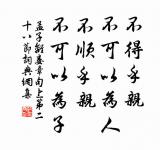 不得乎親
不可以為人
不順乎親
不可以為子
孟子離婁章句上第二
十八節詞典網集